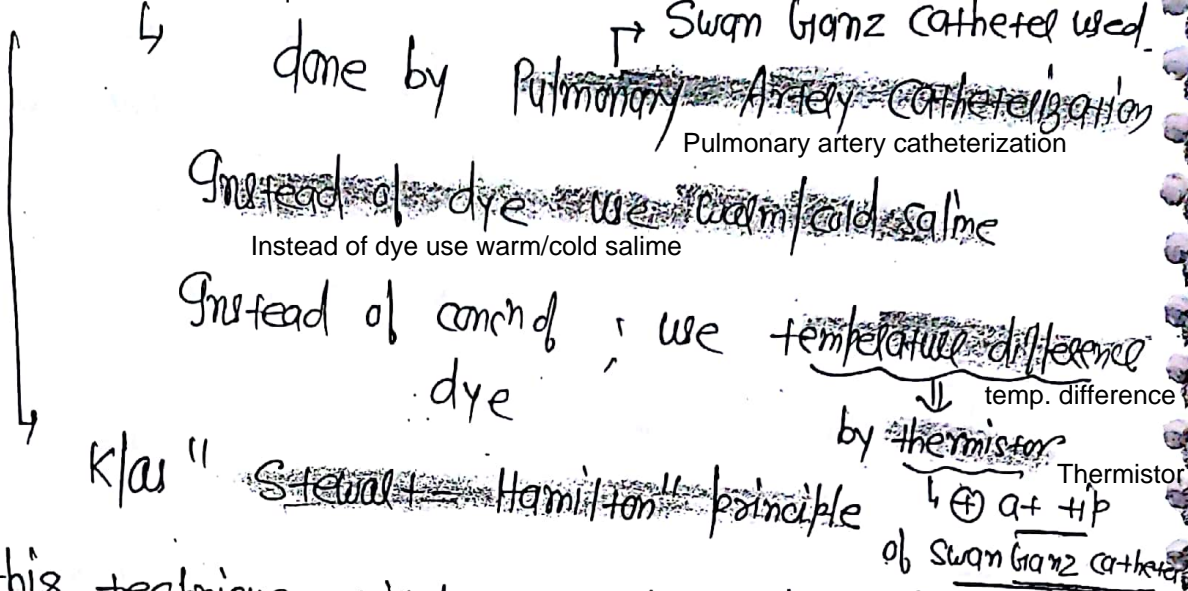 ↳ → Swan Ganz Catheter used
done by Pulmonary Artery Catheterization
Pulmonary artery catheterization
Instead of dye use warm/cold saline
Instead of dye use warm/cold salime
Instead of concn of ; use temperature difference
dye
temp. difference
⇓
by thermistor
Thermistor
K/as " Stewart - Hamilton" principle
↳ ⊕ at tip
of Swan Ganz catheter
this technique